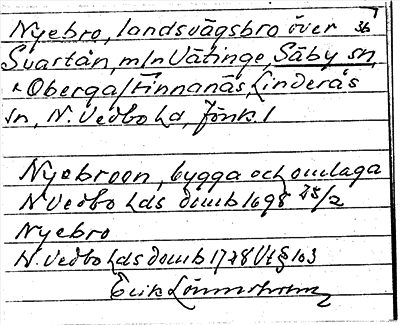 Nyebro, landsvägsbro över 36
Svartån, m/n Vätinge, Säby sn,
o Oberga/Finnanäs, Linderås
sn, N. Vedbo hd, Jönk. l
Nyebroon, bygga och omlaga
N Vedbo hds domb 1698 25/2
Nyebro
N. Vedbo hds domb 1728 Vt § 103
Erik Lönnsholm